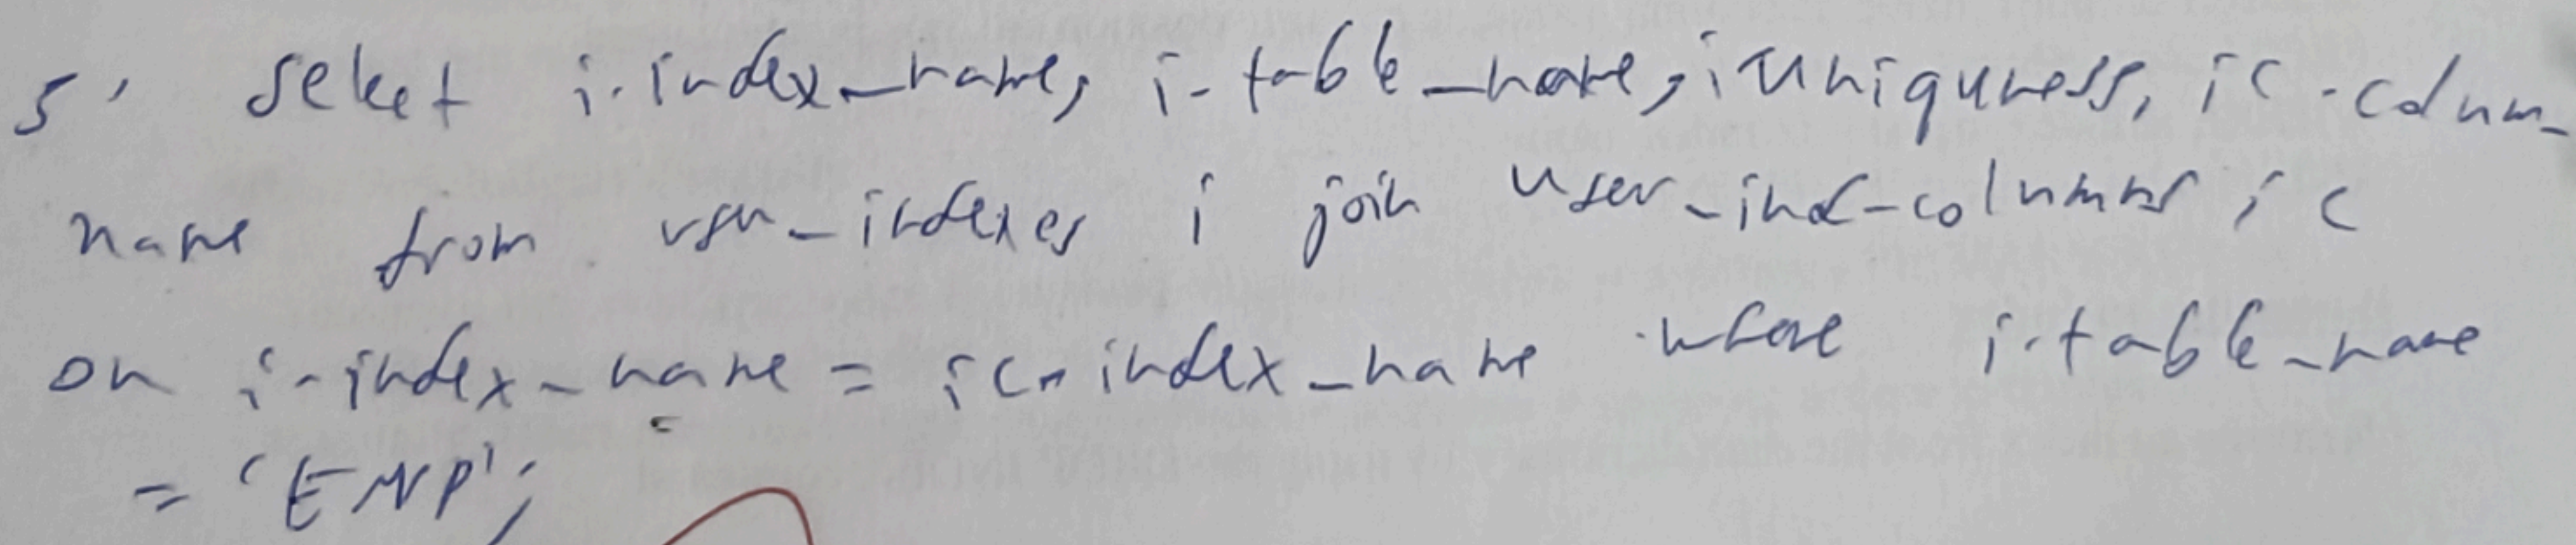 5. select i.index_name, i.table_name, i.uniquness, ic.colum_
name from user_indexes i join user_ind_columns ic
on i.index_name = ic.index_name where i.table_name
= 'EMP';